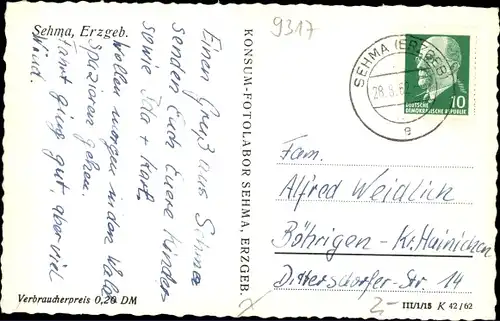 Sehma, Erzgeb.
Einen Gruß aus Sehma
senden Euch Euere Kinder
sowie Ida + Karl.
Wollen morgen in den Wald
Spazieren gehen.
Fahrt ging gut, aber viel
Wind.
Verbraucherpreis 0,20 DM
KONSUM-FOTOLABOR SEHMA, ERZGEB.
9317
SEHMA (ERZGEB)
28.8.62
e
DEUTSCHE
DEMOKRATISCHE REPUBLIK
10
Fam.
Alfred Weidlich
Böhrigen - Kr. Hainichen
Dittersdorfer-Str. 14
2,-
III/1/15 K 42/62